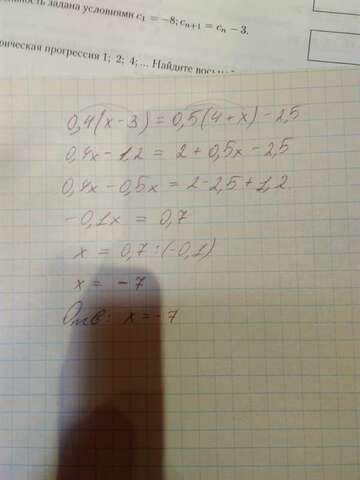 задана условиями c₁ = −8; cₙ₊₁ = cₙ − 3.
прогрессия 1; 2; 4; ... Найдите
0,4(x-3) = 0,5(4+x)-2,5
0,4x-1,2 = 2+0,5x-2,5
0,4x-0,5x = 2-2,5+1,2
-0,1x = 0,7
x = 0,7:(-0,1)
x = -7
Отв: x=-7